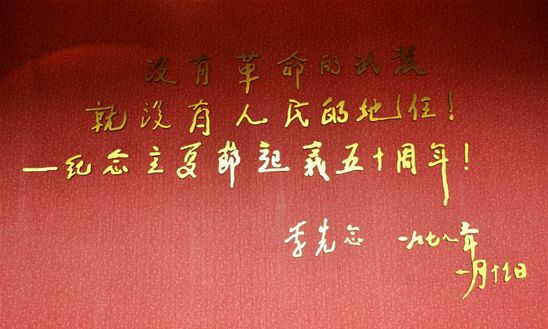 没有革命的武装
就没有人民的地位!
—纪念立夏節起義五十周年!
李先念 一九七八年
一月十日